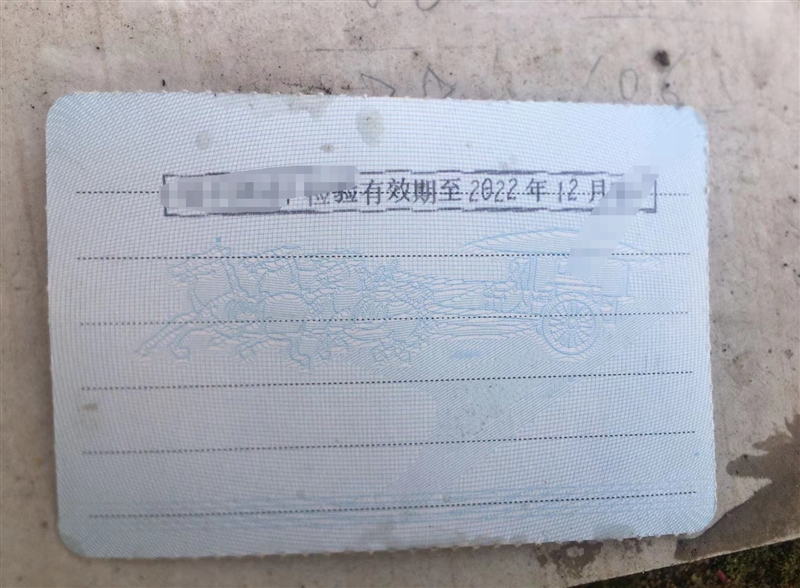 检验有效期至2022年12月